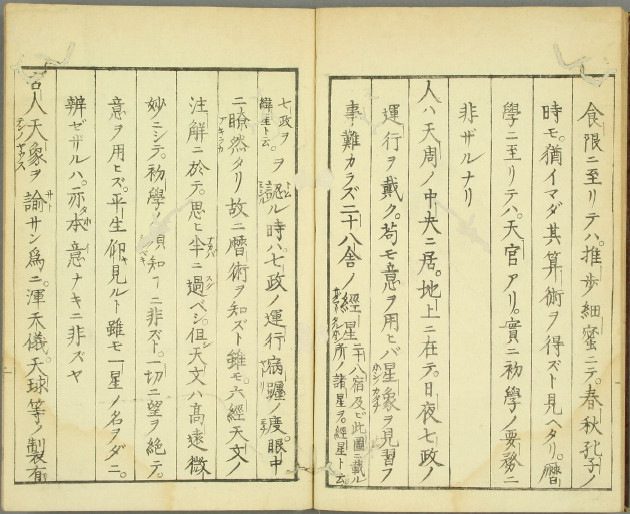 食限ニ至リテハ。推歩細蜜ニテ。春秋孔子ノ
時モ。猶イマダ其算術ヲ得ズト見ヘタリ。暦
學ニ至リテハ。天官アリ。實ニ初學ノ要務ニ
非ザルナリ
人ハ天周ノ中央ニ居。地上ニ在テ。日夜七政ノ
運行ヲ戴ク。苟モ意ヲ用ヒバ星象ヲ見習フ
事難カラズ二十八舎ノ經星二十八宿及ビ此圖ニ載ル所ノ諸星ヲ。經星ト云。
七政ヲ緯星ト云。ヲ認ル時ハ。七政ノ運行病軅ノ度。眼中
ニ瞭然タリ故ニ暦術ヲ知ズト雖モ。六經天文ノ
注解ニ於テ。思ヒ半ニ過ベシ。但天文ハ高遠微
妙ニシテ。初學ノ知ニ非ズト。一切ニ望ヲ絶テ。
意ヲ用ヒズ。平生仰見ルト雖モ一星ノ名ヲダニ。
辨ゼザルハ。亦本意ナキニ非ズヤ
古人天象ヲ諭サン爲ニ。渾天儀。天球等ノ製有